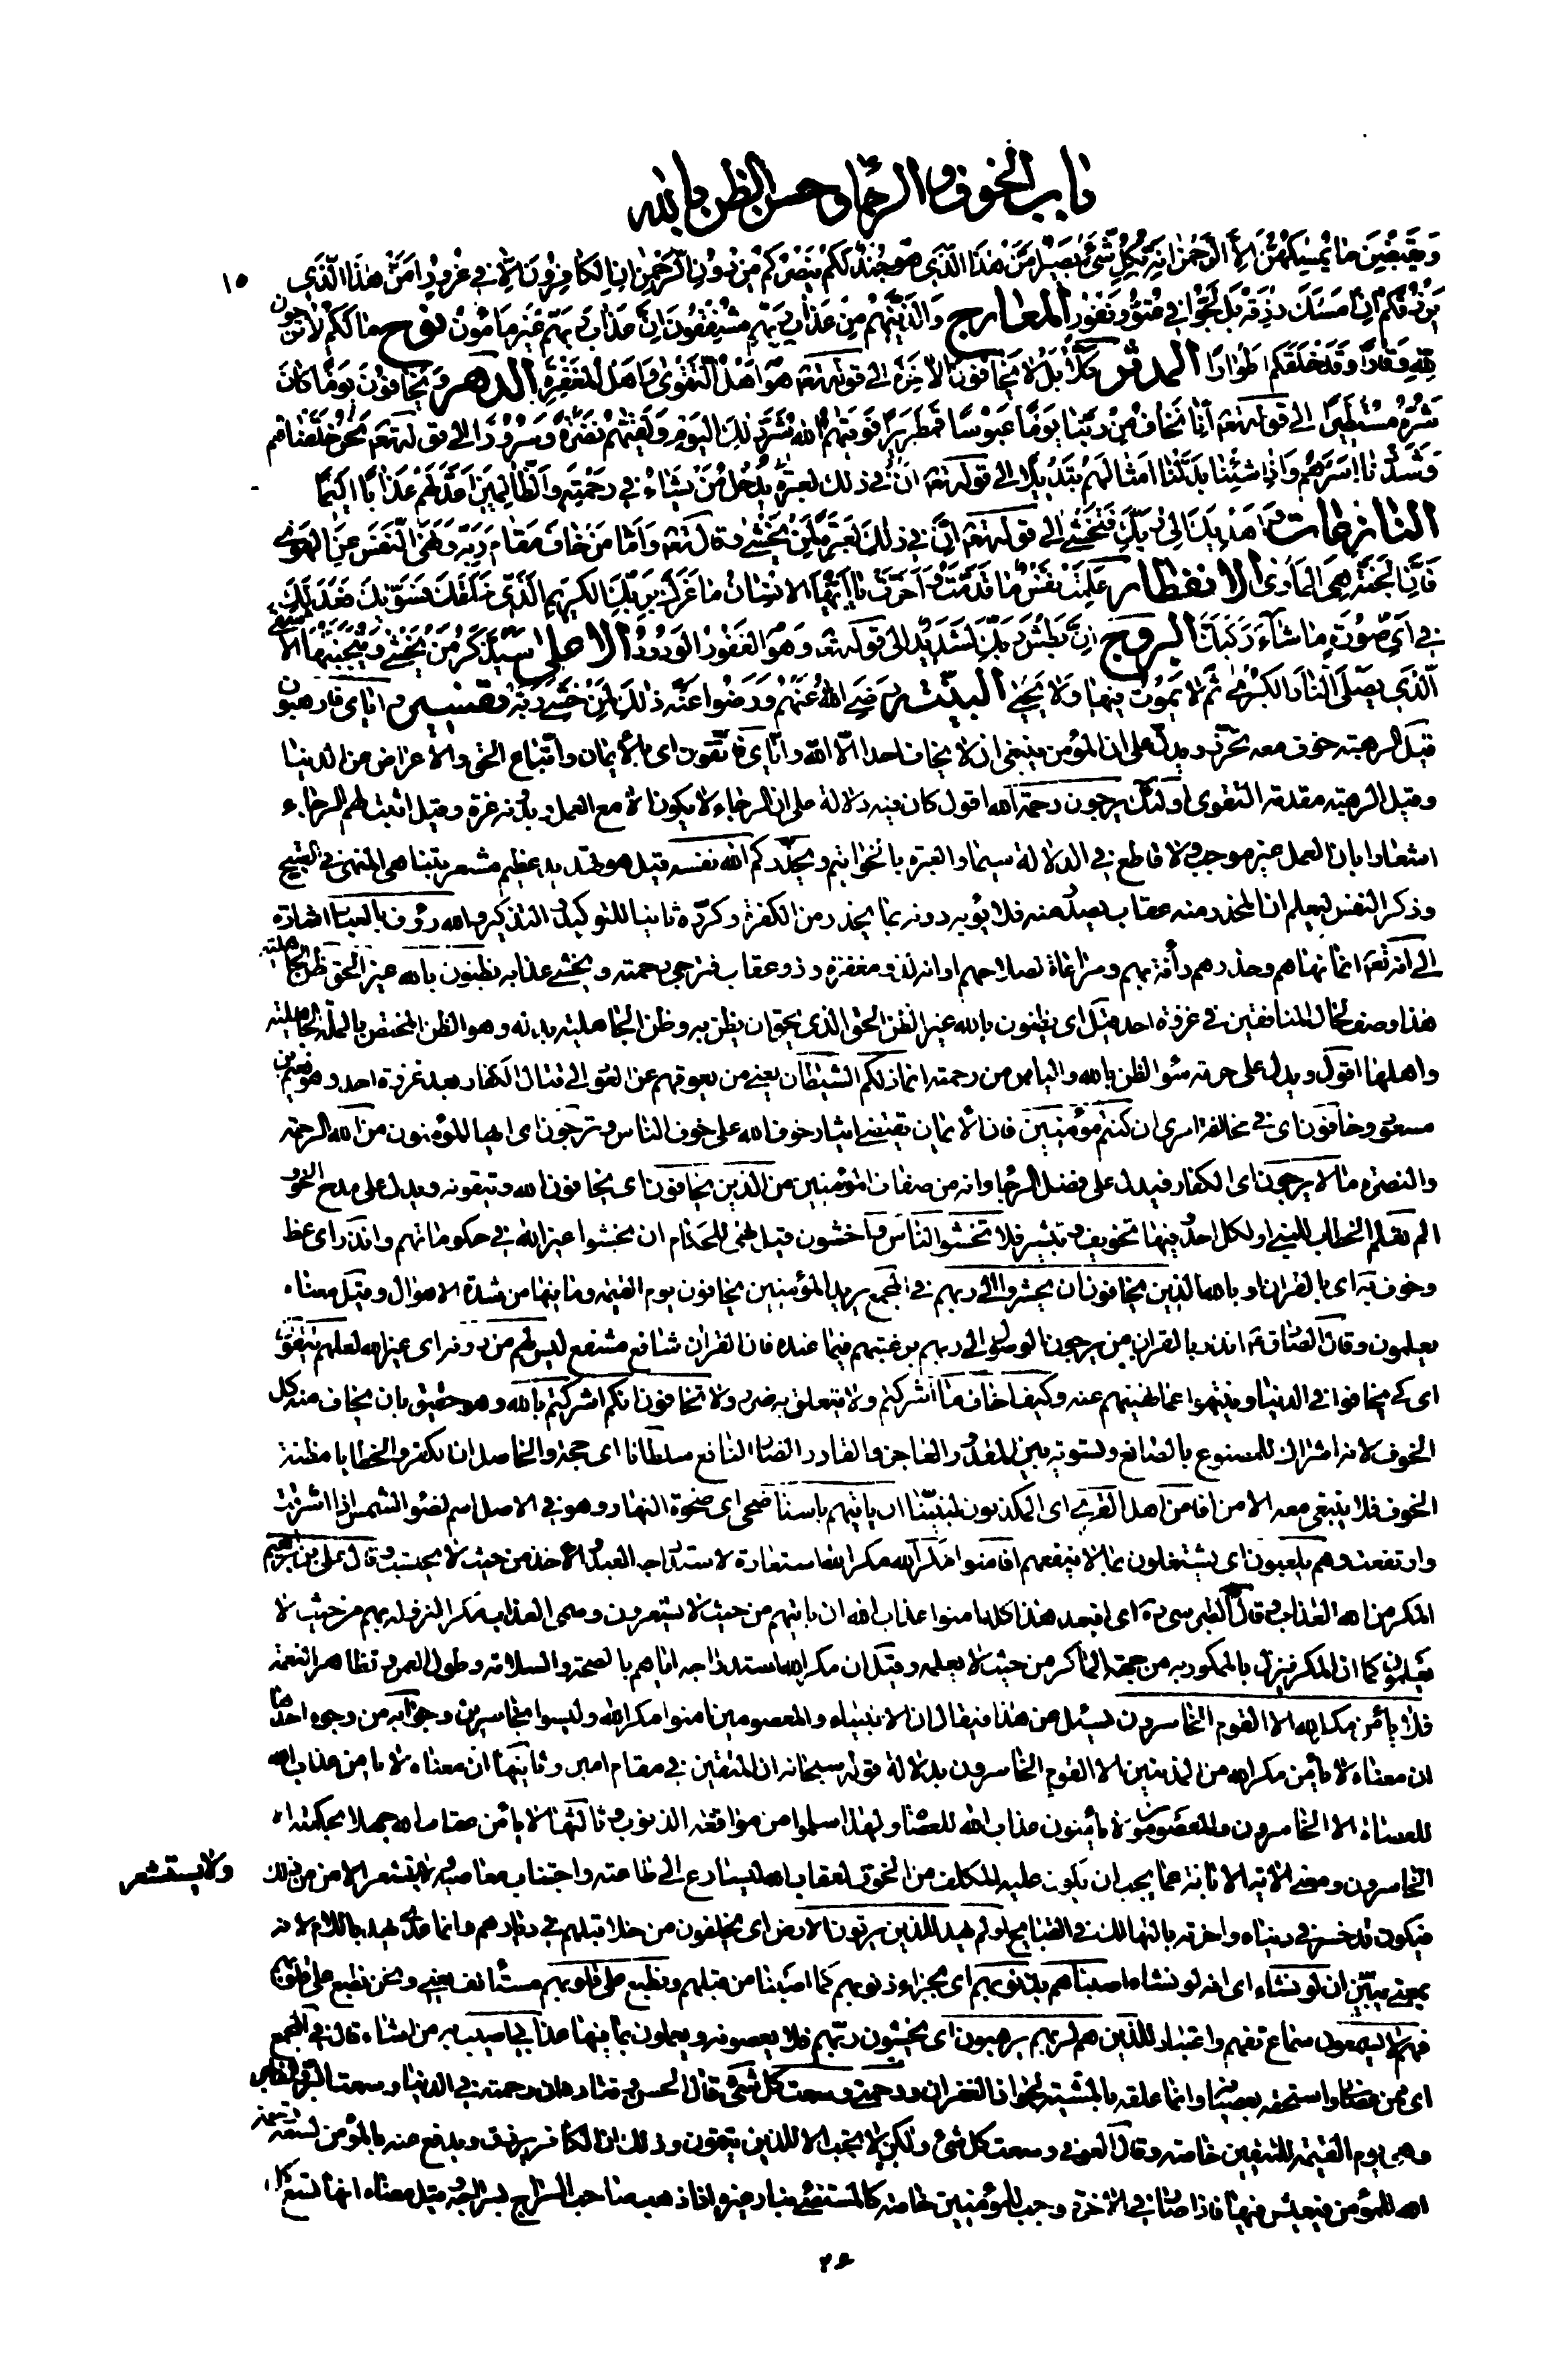 باب الخوف و الرجاء و حسن الظن بالله
وَيَقْبِضْنَ مٰا يُمْسِكُهُنَّ اِلاَّ الرَّحْمٰنُ اِنَّهُ بِكُلِّ شَيْءٍ بَصِيرٌ اَمَّنْ هٰذَا الَّذِي هُوَ جُنْدٌ لَكُمْ يَنْصُرُكُمْ مِنْ دُونِ الرَّحْمٰنِ اِنِ الكٰافِرُونَ اِلاّ فِي غُرُورٍ اَمَّنْ هٰذَا الَّذِي
١٥
يَرْزُقُكُمْ اِنْ اَمْسَكَ رِزْقَهُ بَلْ لَجُّوا فِي عُتُوٍّ وَنُفُورٍ المعارج وَالَّذِينَ هُمْ مِنْ عَذٰابِ رَبِّهِمْ مُشْفِقُونَ اِنَّ عَذٰابَ رَبِّهِمْ غَيْرُ مَأمُونٍ نوح مٰا لَكُمْ لاٰ تَرْجُونَ
لِلّٰهِ وَقٰارًا وَقَدْ خَلَقَكُمْ اَطْوٰارًا المدثر كَلاّٰ بَلْ لاٰ يَخٰافُونَ الاٰخِرَةَ الى قوله تعه هُوَ اَهْلُ التَّقْوٰى وَاَهْلُ المَغْفِرَةِ الدهر وَيَخٰافُونَ يَوْمًا كٰانَ
شَرُّهُ مُسْتَطِيرًا الى قوله تعه اِنّٰا نَخٰافُ مِنْ رَبِّنٰا يَوْمًا عَبُوسًا قَمْطَرِيرًا فَوَقٰيهُمُ اللّٰهُ شَرَّ ذٰلِكَ اليَوْمِ وَلَقّٰيهُمْ نَضْرَةً وَسُرُورًا الى قوله تعه نَحْنُ خَلَقْنٰاهُمْ
وَشَدَدْنٰا اَسْرَهُمْ وَاِذٰا شِئْنٰا بَدَّلْنٰا اَمْثٰالَهُمْ تَبْدِيلاً الى قوله تعه يُدْخِلُ مَنْ يَشٰاءُ فِي رَحْمَتِهِ وَالظّٰالِمِينَ اَعَدَّ لَهُمْ عَذٰابًا اَلِيمًا
النازعات وَاَهْدِيَكَ اِلٰى رَبِّكَ فَتَخْشٰى الى قوله تعه اِنَّ فِي ذٰلِكَ لَعِبْرَةً لِمَنْ يَخْشٰى وقال تعه وَاَمّٰا مَنْ خٰافَ مَقٰامَ رَبِّهِ وَنَهَى النَّفْسَ عَنِ الهَوٰى
فَاِنَّ الجَنَّةَ هِيَ المَأوٰى الانفطار عَلِمَتْ نَفْسٌ مٰا قَدَّمَتْ وَاَخَّرَتْ يٰا اَيُّهَا الاِنْسٰانُ مٰا غَرَّكَ بِرَبِّكَ الكَرِيمِ الَّذِي خَلَقَكَ فَسَوّٰيكَ فَعَدَلَكَ
فِي اَيِّ صُورَةٍ مٰا شٰاءَ رَكَّبَكَ البروج اِنَّ بَطْشَ رَبِّكَ لَشَدِيدٌ الى قوله تعه وَهُوَ الغَفُورُ الوَدُودُ الاعلى سَيَذَّكَّرُ مَنْ يَخْشٰى وَيَتَجَنَّبُهَا الاَشْقَى
الَّذِي يَصْلَى النّٰارَ الكُبْرٰى ثُمَّ لاٰ يَمُوتُ فِيهٰا وَلاٰ يَحْيٰى البينة رَضِيَ اللّٰهُ عَنْهُمْ وَرَضُوا عَنْهُ ذٰلِكَ لِمَنْ خَشِيَ رَبَّهُ تفسير و ايّاى فارهبون
قيل الرهبة خوف معه تحرّز ويدلّ على ان المؤمن ينبغى ان لا يخاف احدا الاّ اللّه وايّاى فاتّقون اى بالايمان واتّباع الحق والاعراض عن الدنيا
وقيل الرهبة مقدمة التقوى اولئك يرجون رحمة اللّه اقول كان فيه دلالة على ان الرجاء لا يكون الا مع العمل وبدونه غرة وقيل اثبت لهم الرجاء
اشعارا بان العمل غير موجب ولا قاطع في الدلالة سيما والعبرة بالخواتيم ويحذّركم اللّه نفسه قيل هو تهديد عظيم مشعر بتناهى المنهى في القبح
وذكر النفس ليعلم ان المحذر منه عقاب يصدر منه فلا يؤبه دونه بما يحذر من الكفرة وكرّره ثانيا للتوكيد والتذكير واللّه رؤف بالعباد اشارة
الى انه تعه انما نهاهم وحذرهم رأفة بهم ومراعاة لصلاحهم او انه لذو مغفرة وذو عقاب فترجى رحمته ويخشى عذابه يظنون باللّه غير الحق ظن الجاهلية
هذا وصف لحال المنافقين في غزوة احد قيل اى يظنون باللّه غير الظن الحق الذى يحق ان يظن به وظن الجاهلية بدله وهو الظن المختص بالملة الجاهلية
واهلها اقول ويدل على حرمة سوء الظن باللّه والياس من رحمته انما ذلكم الشيطان يعنى من يعوقهم عن العود الى قتال الكفار بعد غزوة احد وهو نعيم بن
مسعود وخافون اى في مخالفة امرى ان كنتم مؤمنين فان الايمان يقتضى ايثار خوف اللّه على خوف الناس وترجون اى ايها المؤمنون من اللّه الرحمة
والنصرة ما لا يرجون اى الكفار فيدل على فضل الرجاء وانه من صفات المؤمنين من الذين يخافون اى يخافون اللّه ويتقونه ويدل على مدح الخوف
الم تعلم الخطاب للنبى او لكل احد وفيها تخويف وتبشير فلا تخشوا الناس واخشون قيل نهى للحكام ان يخشوا غير اللّه في حكوماتهم وانذر اى عظ
وخوف به اى بالقران او باللّه الذين يخافون ان يحشروا الى ربهم في المجمع يريد المؤمنين يخافون يوم القيمة وما فيها من شدة الاهوال وقيل معناه
يعلمون وقال الصادق ع انذر بالقران من يرجون الوصول الى ربهم برغبتهم فيما عنده فان القران شافع مشفع ليس لهم من دونه اى غير اللّه لعلهم يتقون
اى كى يخافوا في الدنيا وينتهوا عما نهيتهم عنه وكيف اخاف ما اشركتم ولا يتعلق به ضر ولا تخافون انكم اشركتم باللّه وهو حقيق بان يخاف منه كل
الخوف لانه اشراك للمصنوع بالصانع وتسوية بين المقدور العاجز والقادر الضار النافع سلطانا اى حجة والحاصل ان الكفر والخطايا مظنة
الخوف فلا ينبغى معه الامن افامن اهل القرى اى المكذبون لنبيّنا ان ياتيهم باسنا ضحى اى ضحوة النهار وهو في الاصل اسم لضوء الشمس اذا اشرقت
وارتفعت وهم يلعبون اى يشتغلون بما لا ينفعهم افامنوا مكر اللّه مكر اللّه استعارة لاستدراجه العبد والاخذ من حيث لا يحتسب وقال على بن ابراهيم
المكر من اللّه العذاب وقال الطبرسى ره اى افبعد هذا كله امنوا عذاب اللّه ان ياتيهم من حيث لا يشعرون وسمى العذاب مكرا لنزوله بهم من حيث لا
يعلمون كما ان المكر ينزل بالممكور به من جهة الماكر من حيث لا يعلمه وقيل ان مكر اللّه استدراجه اياهم بالصحة والسلامة وطول العمر وتظاهر النعمة
فلا يامن مكر اللّه الا القوم الخاسرون يسئل عن هذا فيقال ان الانبياء والمعصومين امنوا مكر اللّه وليسوا بخاسرين وجوابه من وجوه احدها
ان معناه لا يامن مكر اللّه من المذنبين الا القوم الخاسرون بدلالة قوله سبحانه ان المتقين في مقام امين وثانيها ان معناه لا يامن عذاب اللّه
للعصاة الا الخاسرون والمعصومون لا يامنون عذاب اللّه للعصاة ولهذا سلموا من مواقعة الذنوب وثالثها لا يامن عقاب اللّه جهلا بحكمته الا
الخاسرون ومعنى الاية الابانة عما يجب ان يكون عليه المكلف من الخوف لعقاب اللّه ليسارع الى طاعته واجتناب معاصيه ولا يستشعر الامن من ذلك
ولا يستشعر
فيكون قد خسر في دنياه واخرته بالتهالك في القبايح اولم يهد للذين يرثون الارض اى يخلفون من خلا قبلهم في ديارهم وانما عدى يهد باللام لانه
بمعنى يبيّن ان لو نشاء اى انه لو نشاء اصبناهم بذنوبهم اى بجزاء ذنوبهم كما اصبنا من قبلهم ونطبع على قلوبهم مستانف يعنى ونحن نطبع على قلوبهم
فهم لا يسمعون سماع تفهم واعتبار للذين هم لربهم يرهبون اى يخشون ربّهم فلا يعصونه ويعملون بما فيها عذابى اصيب به من اشاء قال في المجمع
اى من عصانى واستحقه بعصيانه وانما علقه بالمشية لجواز الغفران ورحمتى وسعت كل شئ قال الحسن وقتادة ان رحمته في الدنيا وسعت البر والفاجر
وهى يوم القيمة للمتقين خاصة وقال العوفى وسعت كل شئ ولكن لا تجب الا للذين يتقون وذلك ان الكافر يرزق ويدفع عنه بالمؤمن لسعة رحمة
اللّه للمؤمن فيعيش فيها فاذا صار في الاخرة وجب للمؤمنين خاصة كالمستضئ بنار غيره اذا ذهب صاحب السراج بسراجه وقيل معناه انها تسع كل
٢٤